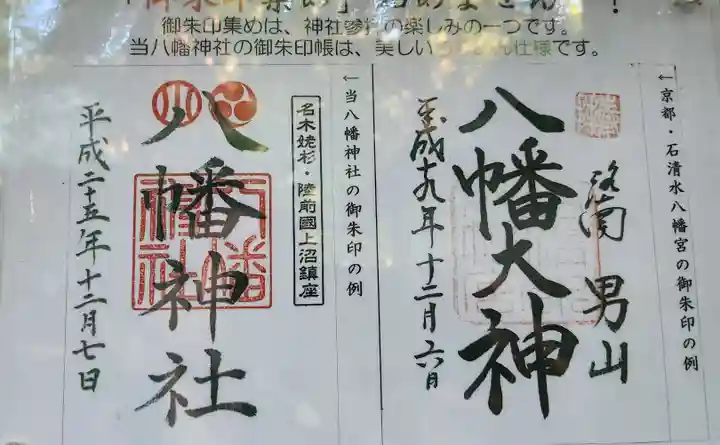 御朱印集めは、神社参拝の楽しみの一つです。
当八幡神社の御朱印帳は、美しい
仕様です。
←京都・石清水八幡宮の御朱印の例
洛南 男山
八幡大神
平成十九年十二月六日
←当八幡神社の御朱印の例
名木姥杉・陸前國上沼鎮座
八幡神社
平成二十五年十二月七日